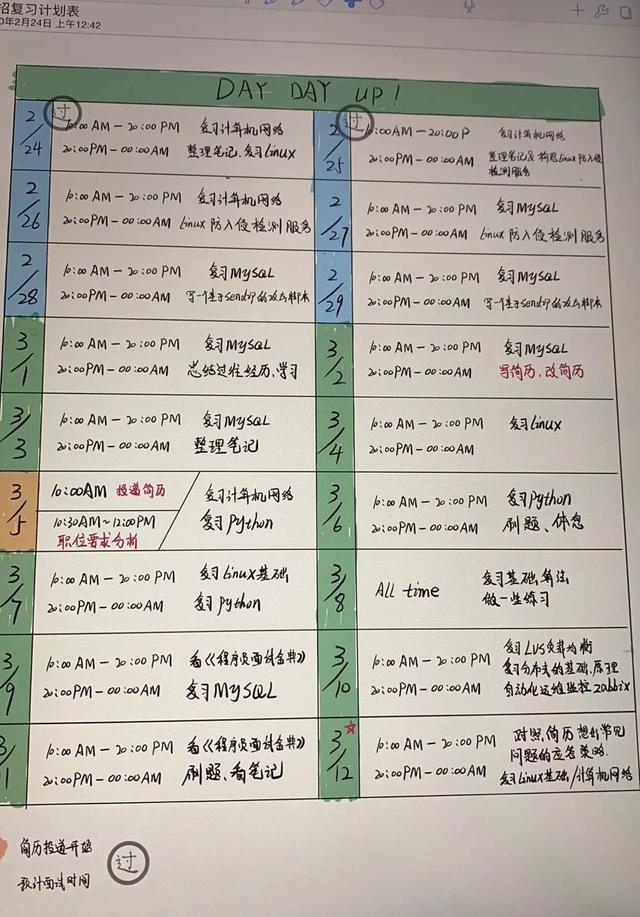 招复习计划表
0年2月24日 上午12:42
DAY DAY UP!
2/24
过
10:00 AM — 20:00 PM 复习计算机网络
20:00PM — 00:00AM 整理笔记、复习Linux
2/25
过
10:00AM — 20:00P 复习计算机网络
20:00PM — 00:00AM 整理笔记及构思Linux防入侵
检测服务
2/26
10:00 AM — 20:00 PM 复习计算机网络
20:00PM — 00:00AM Linux防入侵检测服务
2/27
10:00 AM — 20:00 PM 复习MySQL
20:00PM — 00:00AM Linux防入侵检测服务
2/28
10:00 AM — 20:00 PM 复习MySQL
20:00PM — 00:00AM 写一个基于sendip的攻击脚本
2/29
10:00 AM — 20:00 PM 复习MySQL
20:00PM — 00:00AM 写一个基于sendip的攻击脚本
3/1
10:00 AM — 20:00 PM 复习MySQL
20:00PM — 00:00AM 总结过往经历、学习
3/2
10:00 AM — 20:00 PM 复习MySQL
20:00PM — 00:00AM 写简历、改简历
3/3
10:00 AM — 20:00 PM 复习MySQL
20:00PM — 00:00AM 整理笔记
3/4
10:00 AM — 20:00 PM 复习Linux
20:00PM — 00:00AM
3/5
10:00AM 投递简历
10:30AM~12:00PM
职位要求分析
复习计算机网络
复习Python
3/6
10:00 AM — 20:00 PM 复习Python
20:00PM — 00:00AM 刷题、休息
3/7
10:00 AM — 20:00 PM 复习Linux基础
20:00PM — 00:00AM 复习Python
3/8
All time 复习基础、算法
做一些练习
3/9
10:00 AM — 20:00 PM 看《程序员面试金典》
20:00PM — 00:00AM 复习MySQL
3/10
10:00 AM — 20:00 PM 复习LVS负载均衡
复习分布式的基础、原理
20:00PM — 00:00AM 自动化运维监控zabbix
3/11
10:00 AM — 20:00 PM 看《程序员面试金典》
20:00PM — 00:00AM 刷题、看笔记
3/12
10:00 AM — 20:00 PM 对照简历想出常见
问题的应答策略
20:00PM — 00:00AM 复习Linux基础/计算机网络
简历投递开始
预计面试时间
过